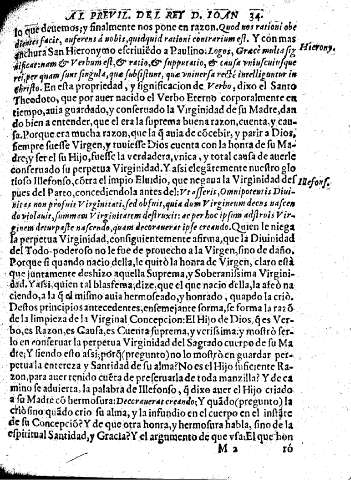 AL PREVIL. DEL REY D. IOAN 34.
lo que deuemos; y finalmente nos pone en razon. Quod nos rationi obe
dientes facit, auferens à nobis, quidquid rationi contrarium est. Y con mas
anchura San Hieronymo escriuiẽdo a Paulino: Logos, Græcè multa sig
Hierony.
nificat: nam & Verbum est, & ratio, & supputatio, & causa vniuscuiusque
rei, per quam sunt singula, quæ subsistunt, quæ vniuersa rectè intelligimus in
Christo. En esta propriedad, y significacion de Verbo, dixo el Santo
Theodoto, que por auer nacido el Verbo Eterno corporalmente en
tiempo, auia guardado, y conseruado la Virginidad de su Madre, dan
do bien a entender, que el era la suprema buena razon, cuenta, y cau-
sa. Porque era mucha razon, que la q̃ auia de cõcebir, y parir a Dios,
siempre fuesse Virgen, y tuuiesse Dios cuenta con la honra de su Ma-
dre; y ser el su Hijo, fuesse la verdadera, vnica, y total causa de auerle
conseruado su perpetua Virginidad. Y assi elegãtemente nuestro glo
rioso Illefonso, cõtra el impio Eluidio, que negaua la Virginidad des
Illefons.
pues del Parto, concediendola antes del: Vt asseris, Omnipotentis Diui-
nitas non profuit Virginitati, sed obfuit, quia dum Virgineum decus nascen
do violauit, summam Virginitatem destruxit: ac per hoc ipsam adstruis Vir-
ginem deturpasse nascendo, quam decorauerat ipse creando. Quien le niega
la perpetua Virginidad, consiguientemente afirma, que la Diuinidad
del Todo-poderoso no le fue de prouecho a la Virgen, sino de daño,
Porque si quando nacio della, le quitò la honra de Virgen, claro està
que juntamente deshizo aquella Suprema, y Soberanissima Virgini-
dad. Y assi, quien tal blasfema, dize; que el que nacio della, la afeò na
ciendo, a la q̃ el mismo auia hermoseado, y honrado, quando la criò.
Destos principios antecedentes, en semejante forma, se forma la razõ
de la limpieza de la Virginal Concepcion: El Hijo de Dios, q̃ es Ver-
bo, es Razon, es Causa, es Cuenta suprema, y verissima; y mostrò ser-
lo en conseruar la perpetua Virginidad del Sagrado cuerpo de su Ma
dre; Y siendo esto assi; porq̃ (pregunto) no lo mostrò en guardar per-
petua la entereza y Santidad de su alma? No es el Hijo suficiente Ra-
zon, para auer tenido cuẽta de preseruarla de toda manzilla? Y de ca
mino se aduierta, la palabra de Illefonso, q̃ dixo auer el Hijo criado
a su Madre cõ hermosura: Decorauerat creando; Y quãdo (pregunto) la
criò sino quãdo crio su alma, y la infundio en el cuerpo en el instãte
de su Concepciõ? Y de que otra honra, y hermosura habla, sino de la
espiritual Santidad, y Gracia? Y el argumento de que vsa: El que hon
M 2 rò